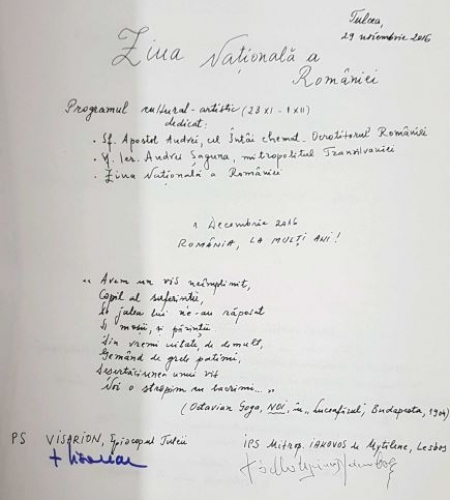 Tulcea,
29 noiembrie 2016
Ziua Națională a
României
Programul cultural-artistic (28 XI - 1 XII)
dedicat:
• Sf. Apostol Andrei, cel Întâi chemat - Ocrotitorul României
• Sf. Ier. Andrei Șaguna, mitropolitul Transilvaniei
• Ziua Națională a României
1 Decembrie 2016
ROMÂNIA, LA MULȚI ANI!
"Avem un vis neîmplinit,
Copil al suferinței,
De jalea lui ne-au răposat
Și moșii, și părinții
Din vremi uitate, de demult,
Gemând de grele patimi,
Deșertăciunea unui vis
Noi o stropim cu lacrimi..."
(Octavian Goga, NOI, în "Luceafărul", Budapesta, 1904)
PS VISARION, Episcopul Tulcii
IPS Mitrop. IAKOVOS de Mytilene, Lesbos